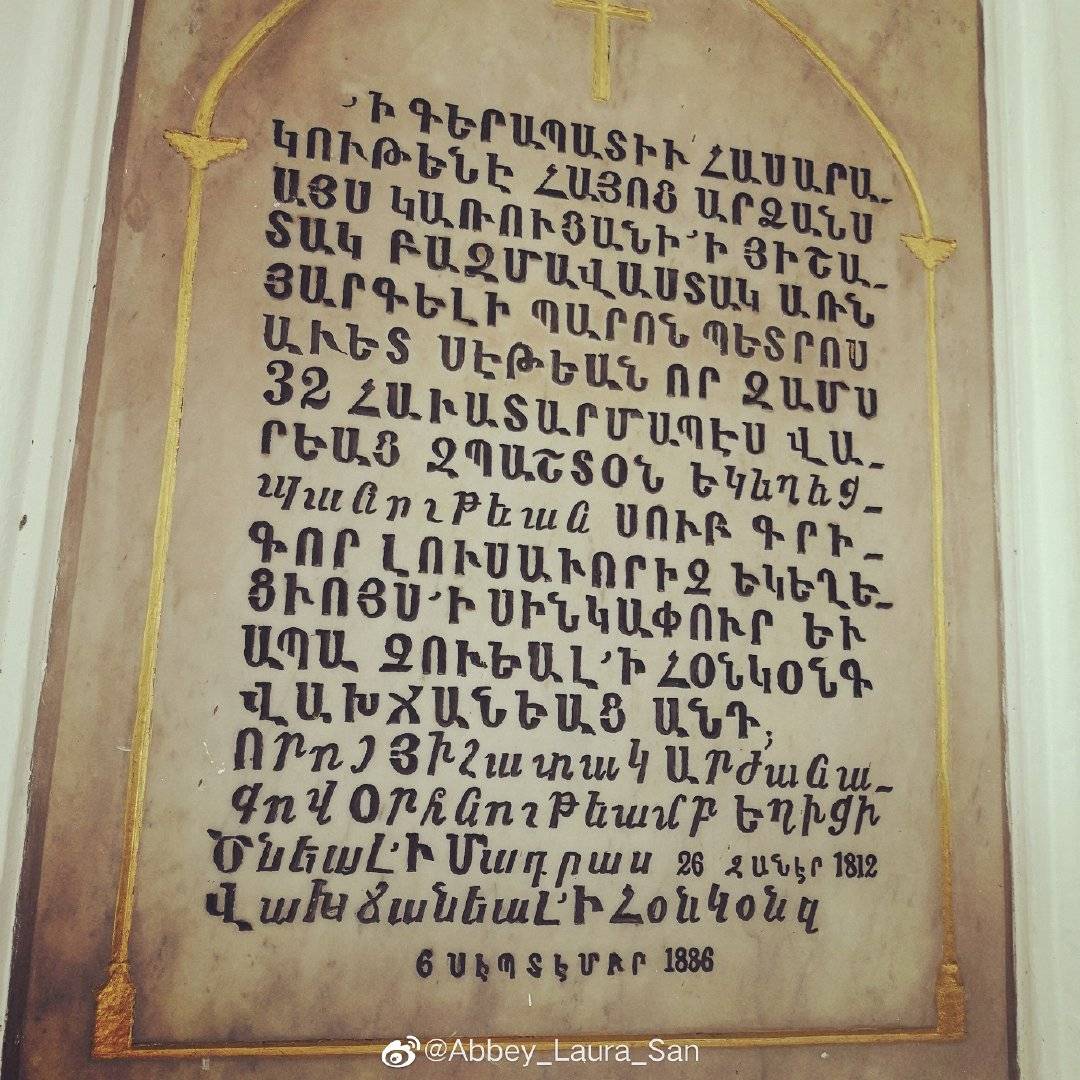 ՛Ի ԳԵՐԱՊԱՏԻՒ ՀԱՍԱՐԱ֊
ԿՈՒԹԵՆԷ ՀԱՅՈՑ ԱՐՁԱՆՍ
ԱՅՍ ԿԱՌՈՒՑԱՆԻ՛Ի ՅԻՇԱ֊
ՏԱԿ ԲԱԶՄԱՎԱՍՏԱԿ ԱՌՆ
ՅԱՐԳԵԼԻ ՊԱՐՈՆ ՊԵՏՐՈՍ
ԱՒԵՏ ՍԷԹԵԱՆ ՈՐ ԶԱՄՍ
32 ՀԱՒԱՏԱՐՄԱՊԷՍ ՎԱ֊
ՐԵԱՑ ԶՊԱՇՏՕՆ ԵԿեղեց֊
պանութեան ՍՈՒԲ ԳՐԻ֊
ԳՈՐ ԼՈՒՍԱՒՈՐԻՉ ԵԿԵՂԵ֊
ՑԻՈՅՍ՛Ի ՍԻՆԿԱՓՈՒՐ ԵՒ
ԱՊԱ ՉՈՒԵԱԼ՛Ի ՀՕՆԿՕՆԳ
ՎԱԽՃԱՆԵԱՑ ԱՆԴ,
Որոյ Յիշատակ Արժանա֊
գով Օրհնութեամբ Եղիցի
Ծնեալ՛Ի Մադրաս 26 ՅԱՆԷՐ 1812
Վախճանեալ՛Ի Հօնկօնգ
6 ՍԷՊՏԷՄԲՐ 1886
@Abbey_Laura_San